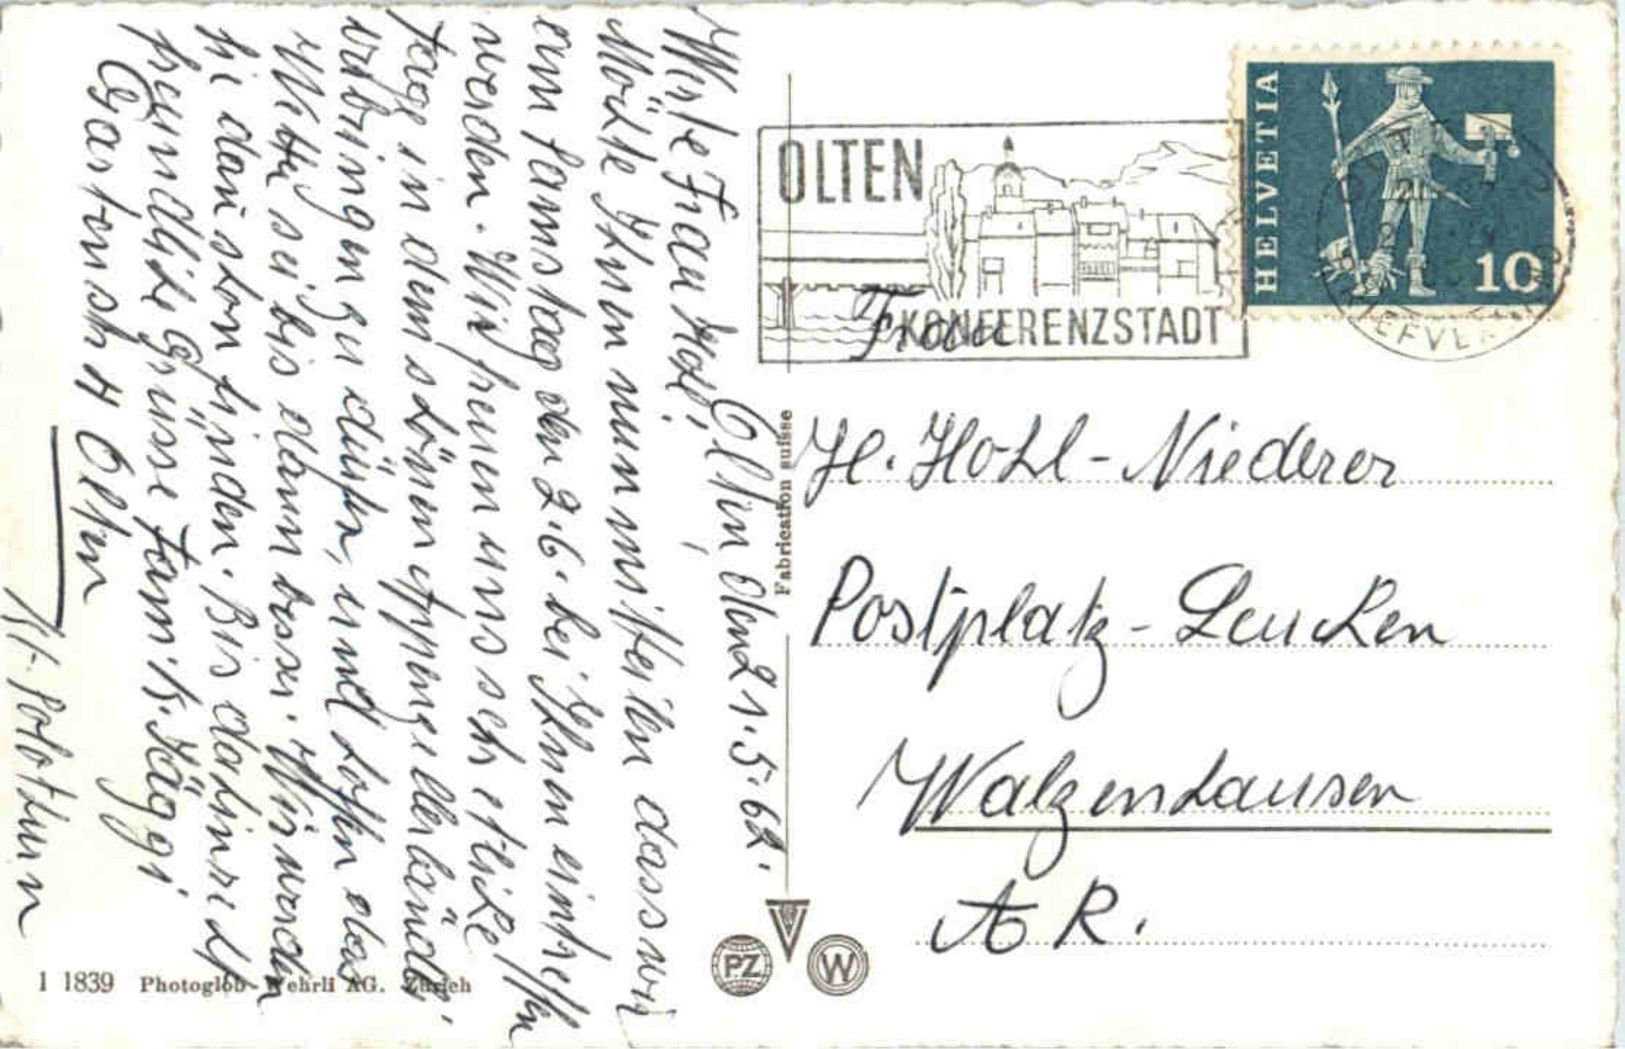 Olten den 21.5.62.
Werte Frau Hohl,
Möchte Ihnen nun mitteilen dass wir
am Samstag den 2.6. bei Ihnen eintreffen
werden. Wir freuen uns sehr etliche
Tage in dem schönen Appenzellerländli
verbringen zu dürfen, und hoffen das
Wetter sei bis dann besser. Wir werden
Sie dan schon finden. Bis dahin recht
freundliche Grüsse Fam. K. Jäggi
Gartenstr 4 Olten
Kt. Solothurn
OLTEN
KONFERENZSTADT
HELVETIA
10
Frau
H. Hohl-Niederer
Postplatz-Leuchen
Walzenhausen
AR.
Fabrication suisse
PZ
W
1 1839 Photoglob-Wehrli AG. Zürich